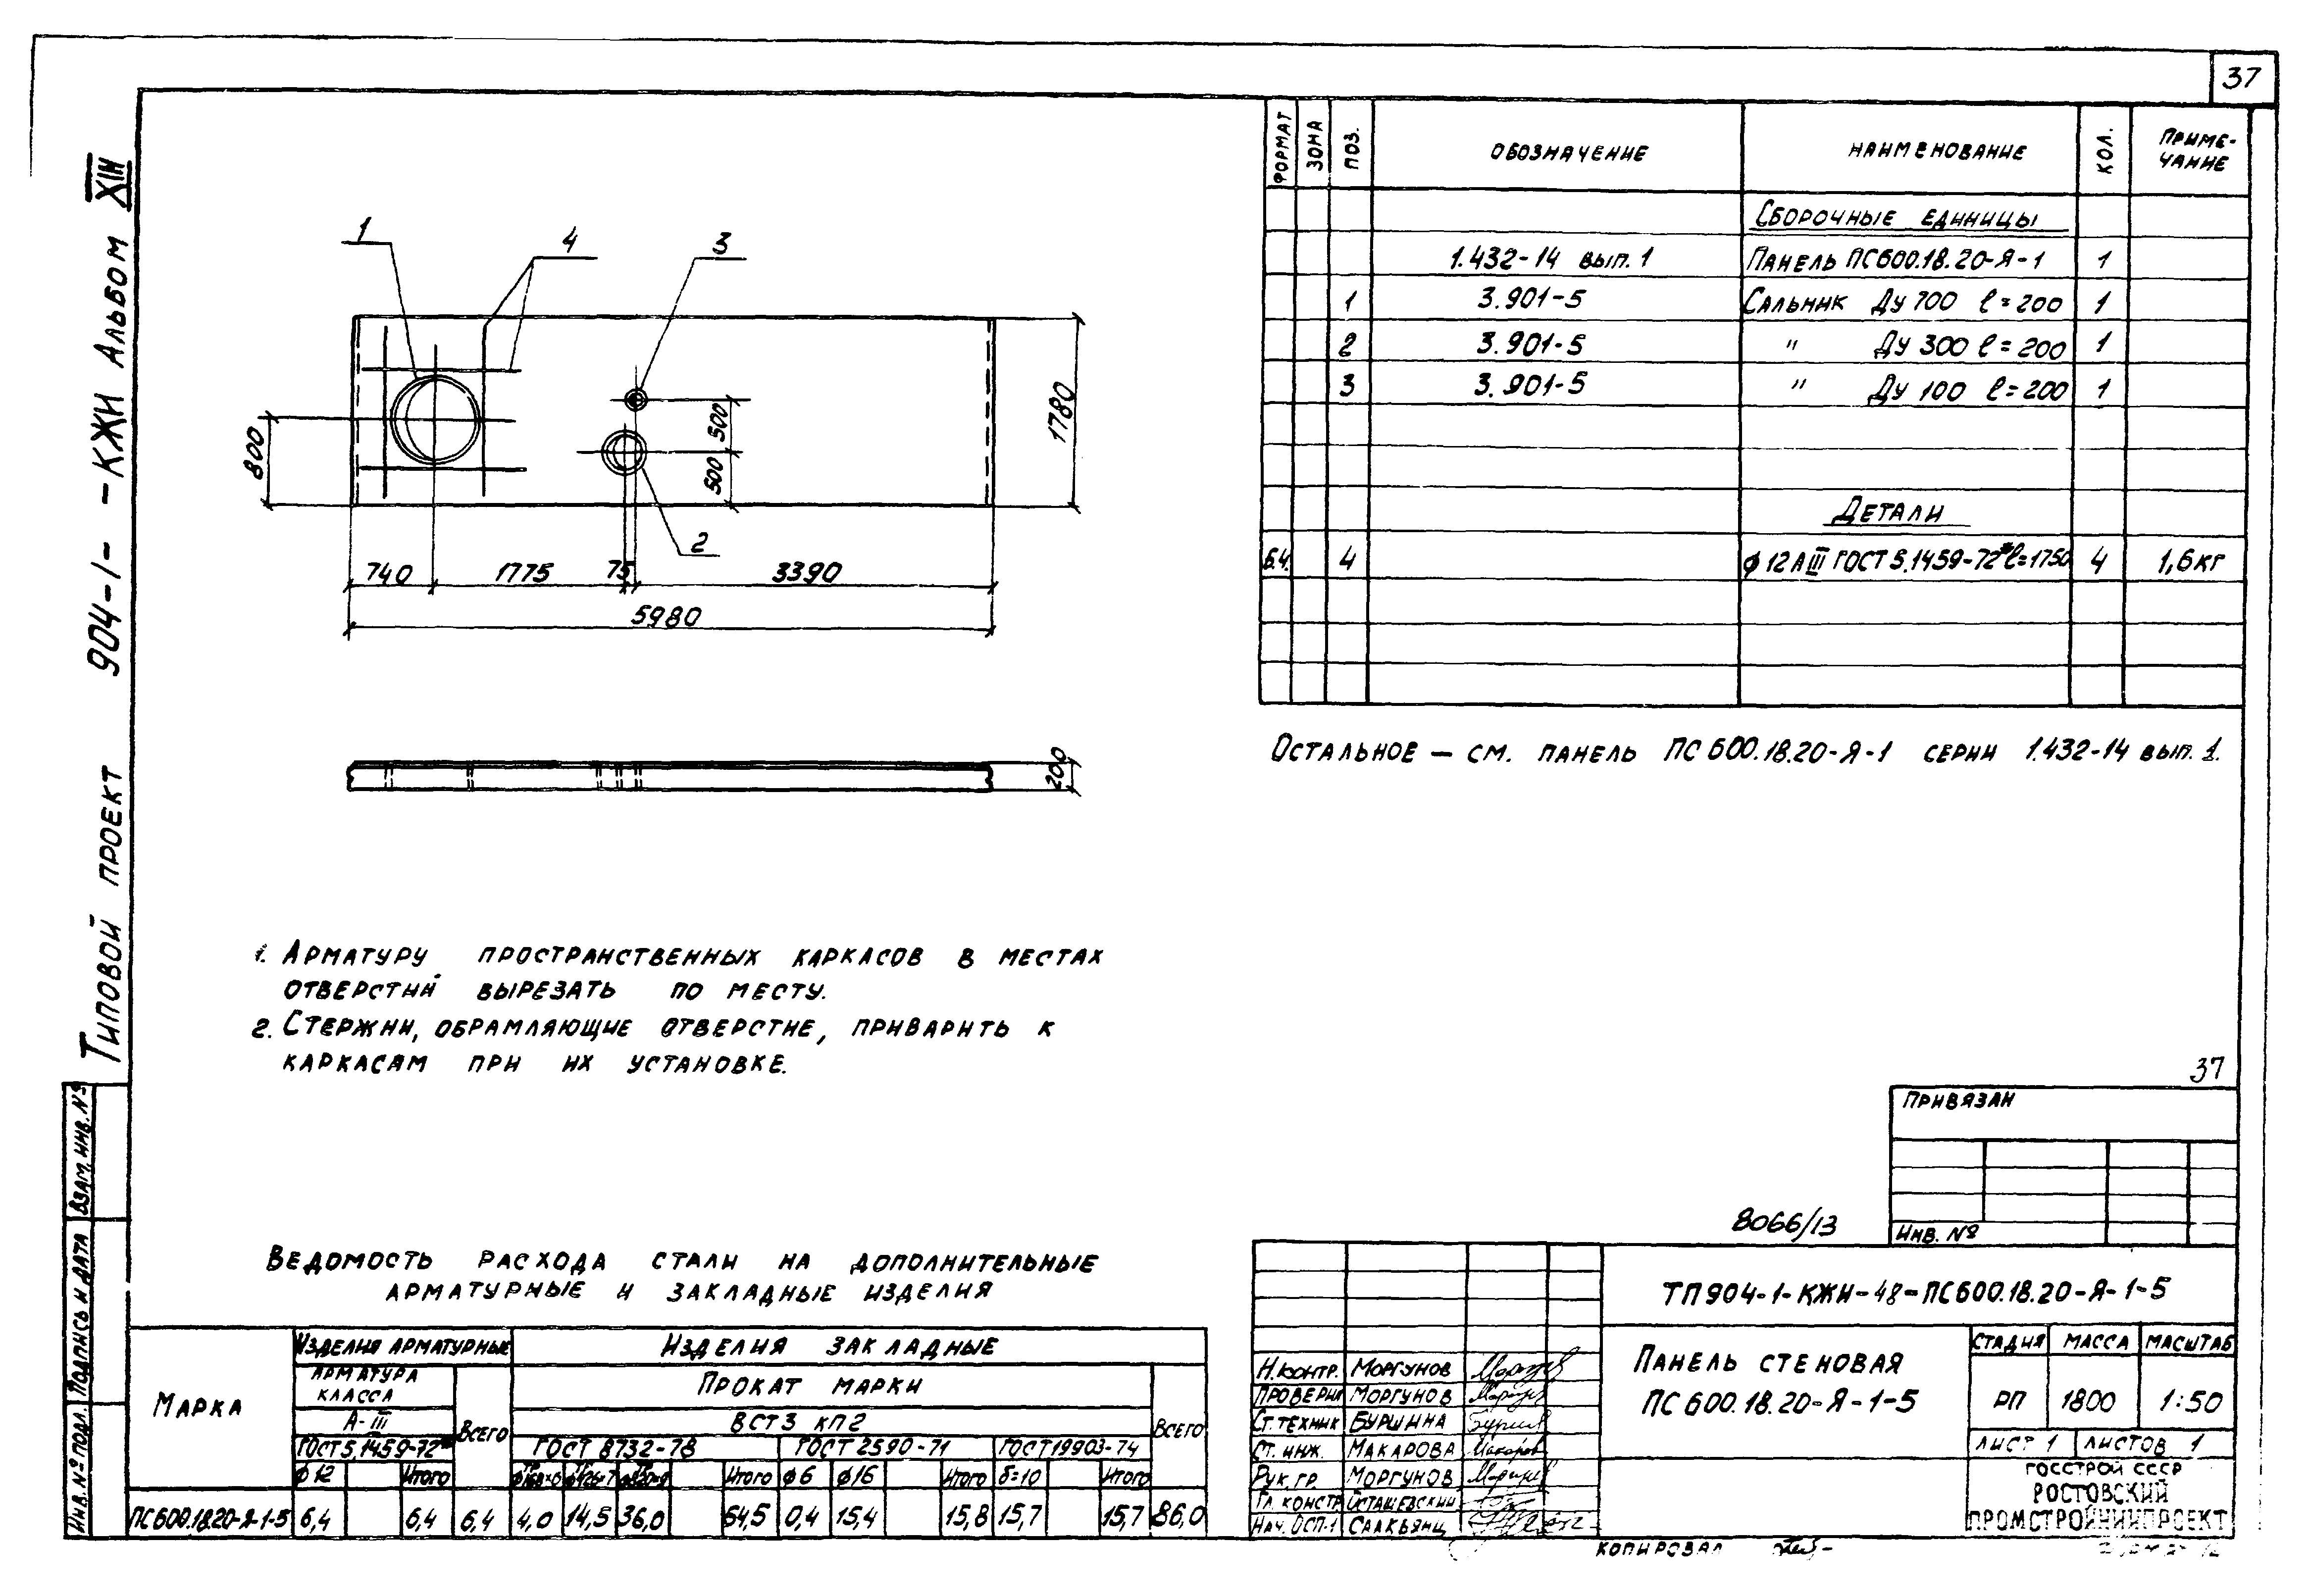 37
Типовой проект 904-1- -КЖИ Альбом XIII
1
4
3
2
800
500
500
1780
740 1775 75 3390
5980
200
ФОРМАТ ЗОНА ПОЗ. ОБОЗНАЧЕНИЕ НАИМЕНОВАНИЕ КОЛ. ПРИМЕ-
ЧАНИЕ
СБОРОЧНЫЕ ЕДИНИЦЫ
1.432-14 вып. 1 ПАНЕЛЬ ПС600.18.20-Я-1 1
1 3.901-5 САЛЬНИК Ду 700 ℓ=200 1
2 3.901-5 " Ду 300 ℓ=200 1
3 3.901-5 " Ду 100 ℓ=200 1
ДЕТАЛИ
Б.Ч. 4 ϕ12АIII ГОСТ 5.1459-72* ℓ=1750 4 1,6кг
ОСТАЛЬНОЕ – СМ. ПАНЕЛЬ ПС600.18.20-Я-1 СЕРИИ 1.432-14 вып. 1.
1. АРМАТУРУ ПРОСТРАНСТВЕННЫХ КАРКАСОВ В МЕСТАХ
ОТВЕРСТИЙ ВЫРЕЗАТЬ ПО МЕСТУ.
2. СТЕРЖНИ, ОБРАМЛЯЮЩИЕ ОТВЕРСТИЕ, ПРИВАРИТЬ К
КАРКАСАМ ПРИ ИХ УСТАНОВКЕ.
37
ПРИВЯЗАН
ИНВ. №
8066/13
ВЕДОМОСТЬ РАСХОДА СТАЛИ НА ДОПОЛНИТЕЛЬНЫЕ
АРМАТУРНЫЕ И ЗАКЛАДНЫЕ ИЗДЕЛИЯ
МАРКА ИЗДЕЛИЯ АРМАТУРНЫЕ ИЗДЕЛИЯ ЗАКЛАДНЫЕ
АРМАТУРА
КЛАССА
ВСЕГО ПРОКАТ МАРКИ ВСЕГО
А-III ВСТ3 КП2
ГОСТ 5.1459-72* ГОСТ 8732-78 ГОСТ 2590-71 ГОСТ 19903-74
ϕ12 Итого Итого ϕ6 ϕ16 Итого δ=10 Итого
ПС600.18.20-Я-1-5 6,4 6,4 6,4 4,0 14,5 36,0 54,5 0,4 15,4 15,8 15,7 15,7 86,0
ТП904-1-КЖИ-48-ПС600.18.20-Я-1-5
ПАНЕЛЬ СТЕНОВАЯ
ПС600.18.20-Я-1-5
СТАДИЯ МАССА МАСШТАБ
РП 1800 1:50
ЛИСТ 1 ЛИСТОВ 1
ГОССТРОЙ СССР
РОСТОВСКИЙ
ПРОМСТРОЙНИИПРОЕКТ
Н.КОНТР. МОРГУНОВ
ПРОВЕРИЛ МОРГУНОВ
СТ.ТЕХНИК БУРШИНА
СТ. ИНЖ. МАКАРОВА
РУК. ГР. МОРГУНОВ
ГЛ. КОНСТР ОСТАШЕВСКИЙ
НАЧ. ОСП-1 СААКЬЯНЦ
КОПИРОВАЛ
ИНВ. № ПОДЛ. ПОДПИСЬ И ДАТА ВЗАМ. ИНВ. №